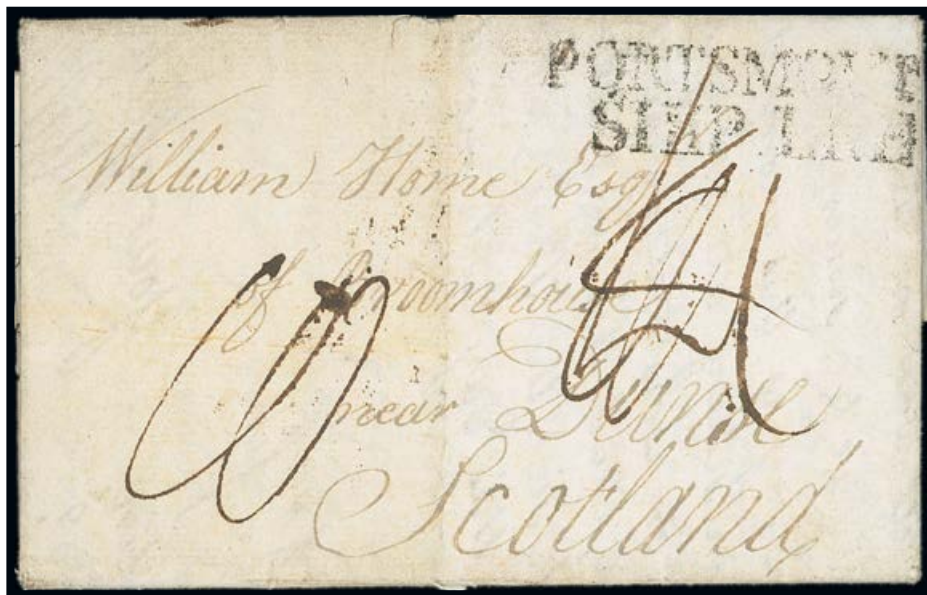 PORTSMOUT
SHIP LRE
William Home Esqr
of Broomhouse
near Dunse
Scotland